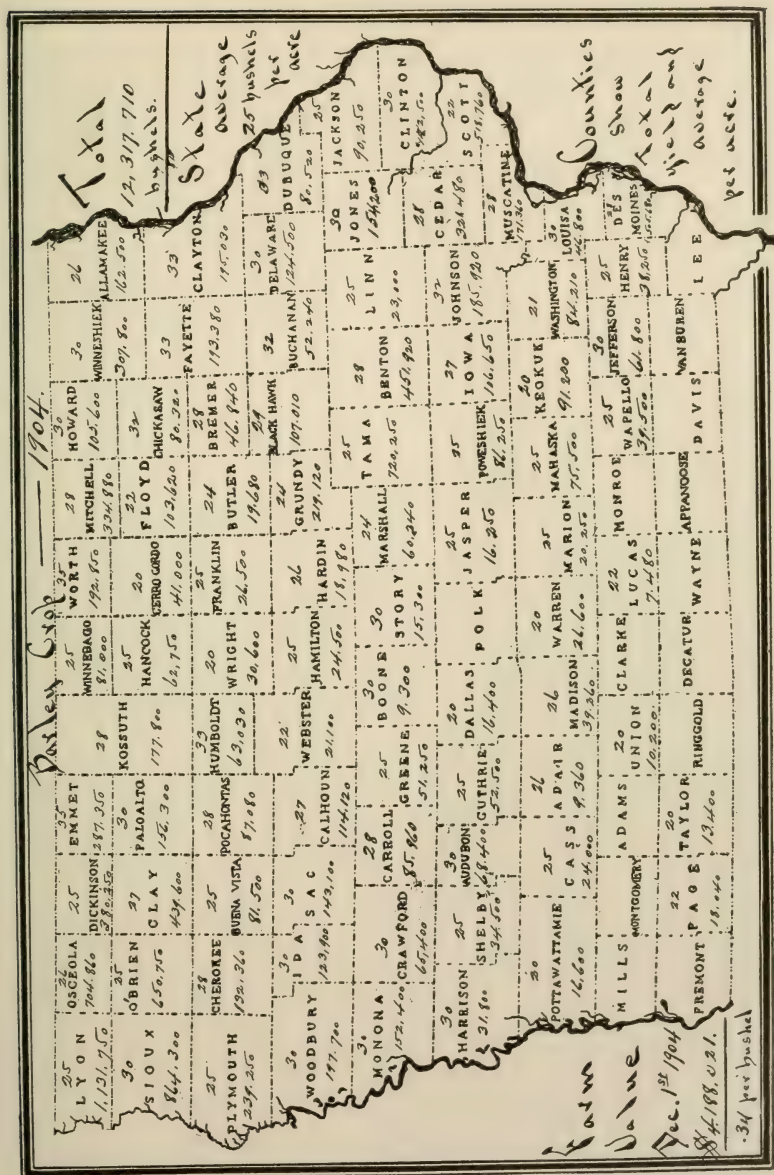 Barley Crop — 1904.
Total
12,317,710
bushels.
State
average
25 bushels
per
acre
Counties
Show
Total
yield and
average
per acre.
Farm
Value
Dec. 1st 1904
$4,188,021.
.34 per bushel
25
LYON
1,131,750
26
OSCEOLA
704,860
25
DICKINSON
35
EMMET
287,350
25
WINNEBAGO
81,000
35
WORTH
192,850
28
MITCHELL
334,880
30
HOWARD
105,600
30
WINNESHIEK
307,800
26
ALLAMAKEE
162,500
30
SIOUX
864,300
25
O'BRIEN
650,750
27
CLAY
439,600
30
PALO ALTO
156,300
28
KOSSUTH
177,800
25
HANCOCK
62,750
20
CERRO GORDO
41,000
22
FLOYD
103,620
32
CHICKASAW
80,320
33
FAYETTE
193,380
33
CLAYTON
195,030
25
PLYMOUTH
239,250
28
CHEROKEE
192,360
25
BUENA VISTA
81,500
28
POCAHONTAS
87,080
33
HUMBOLDT
63,030
20
WRIGHT
30,600
25
FRANKLIN
26,500
24
BUTLER
19,680
28
BREMER
46,840
29
BLACK HAWK
107,010
32
BUCHANAN
52,240
30
DELAWARE
124,500
33
DUBUQUE
80,520
30
WOODBURY
197,700
30
IDA
123,900
30
SAC
143,100
27
CALHOUN
114,120
22
WEBSTER
21,100
25
HAMILTON
24,500
26
HARDIN
18,980
24
GRUNDY
219,120
25
TAMA
720,250
28
BENTON
451,920
25
LINN
23,000
30
JONES
154,200
25
JACKSON
90,250
30
MONONA
152,400
30
CRAWFORD
65,400
28
CARROLL
85,960
25
GREENE
51,250
30
BOONE
9,300
30
STORY
15,300
24
MARSHALL
60,240
30
CLINTON
28
CEDAR
326,480
22
SCOTT
518,760
30
HARRISON
31,800
25
SHELBY
34,500
30
AUDUBON
68,400
25
GUTHRIE
52,500
20
DALLAS
16,400
POLK
25
JASPER
16,250
25
POWESHIEK
86,250
27
IOWA
106,650
32
JOHNSON
185,920
28
MUSCATINE
171,360
20
POTTAWATTAMIE
16,600
25
CASS
24,000
26
ADAIR
9,360
26
MADISON
39,260
20
WARREN
26,600
25
MARION
20,250
25
MAHASKA
75,500
20
KEOKUK
91,200
21
WASHINGTON
84,210
30
LOUISA
46,800
MILLS
MONTGOMERY
ADAMS
20
UNION
10,200
CLARKE
22
LUCAS
7,480
MONROE
25
WAPELLO
39,500
30
JEFFERSON
61,800
25
HENRY
38,250
DES
MOINES
FREMONT
22
PAGE
18,040
20
TAYLOR
13,400
RINGGOLD
DECATUR
WAYNE
APPANOOSE
DAVIS
VAN BUREN
LEE